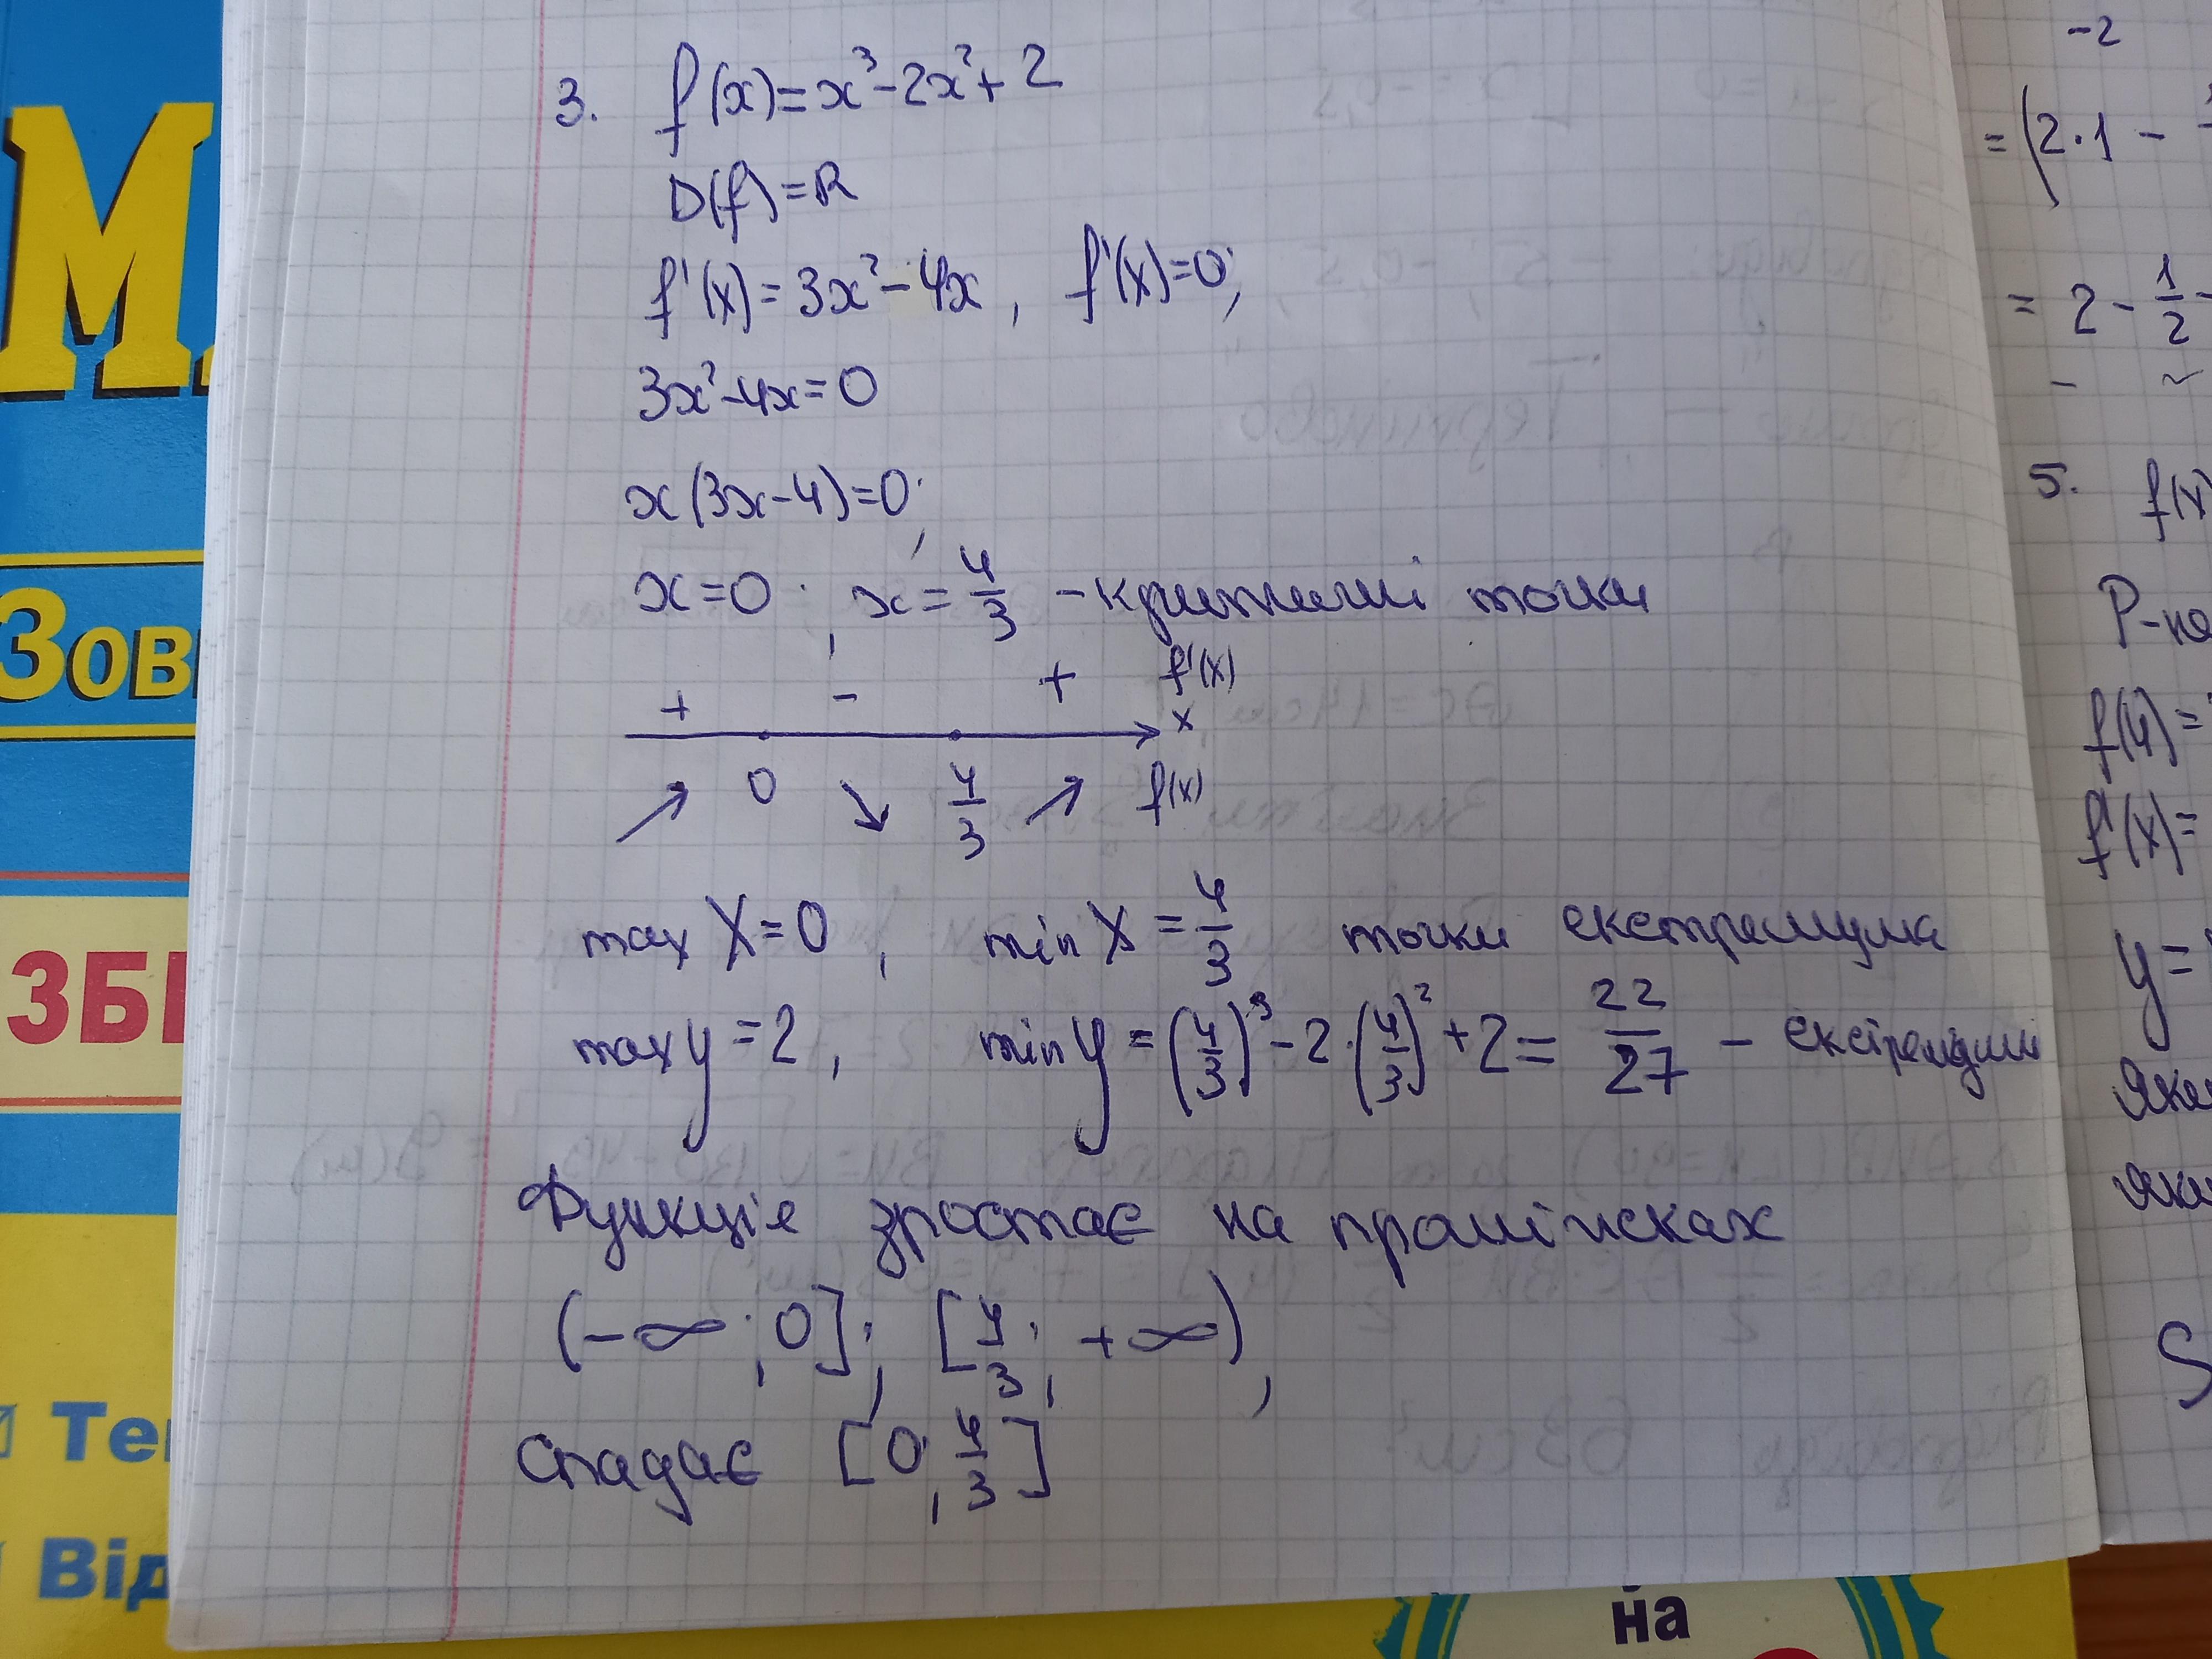 3. f(x)=x³-2x²+2
D(f)=R
f'(x)=3x²-4x, f'(x)=0;
3x²-4x=0
x(3x-4)=0;
x=0; x=4/3 - критичні точки
+ - + f'(x)
x
0 4/3 f(x)
max X=0, min X=4/3 точки екстремума
max y=2, min y=(4/3)³-2·(4/3)²+2=22/27 - екстремуми
Функція зростає на проміжках
(-∞;0]; [4/3;+∞),
спадає [0;4/3]
-2
=(2·1-
=2-1/2-
5. f(x)
P-
f(4)=
f'(x)=
y=
яка
S
М
Зов
ЗБ
Те
Від
на